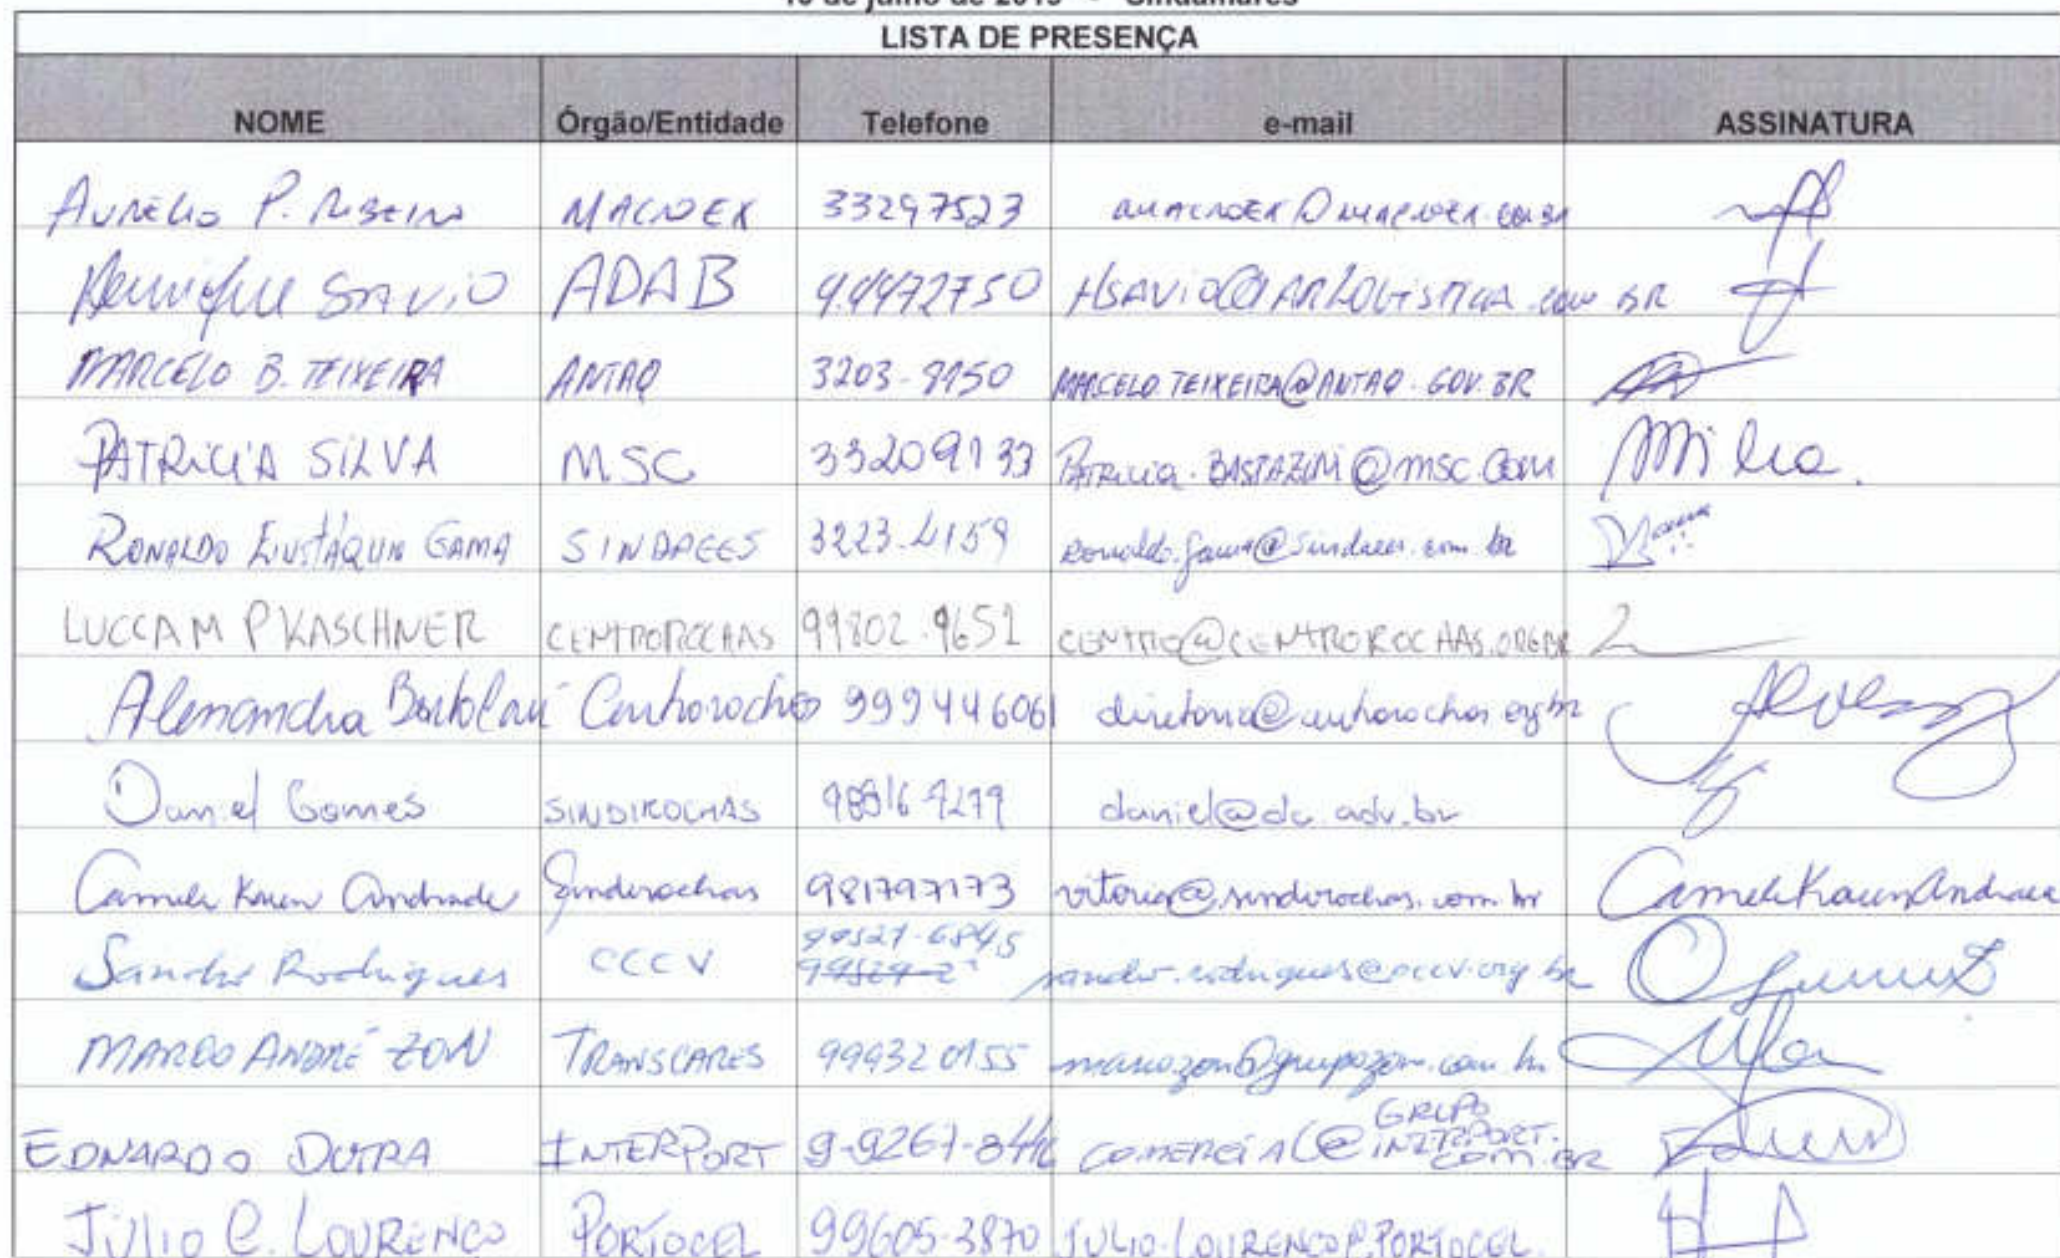 10 de julho de 2019 - Sindamares
LISTA DE PRESENÇA
NOME Órgão/Entidade Telefone e-mail ASSINATURA
AURÉLIO P. RIBEIRO MACROEX 33297523
Henrique SAVIO ADAB
MARCELO B. TEIXEIRA ANTAQ 3203-9150 MARCELO.TEIXEIRA@ANTAQ.GOV.BR
PATRICIA SILVA MSC 33209133 PATRICIA.BASTAZINI@MSC.COM
RONALDO EUSTÁQUIO GAMA SINDAEES 3223-4159 ronaldo.gama@sindaees.com.br
LUCCA M P KASCHNER CENTROROCHAS 99802-9651 CENTRO@CENTROROCHAS.ORG.BR
Alemandra Bortolan Centrorochas 999446061 diretoria@centrorochas.org.br
Daniel Gomes SINDIROCHAS daniel@dc.adv.br
Camele Karen Andrade Sindirochas 981797173 vitoria@sindirochas.com.br Camele Karen Andrade
Sandro Rodrigues CCCV 99527-6845 sandro.rodrigues@cccv.org.br
MARCO ANDRÉ ZON TRANSCARES 999320155 marcozon@grupozon.com.br
EDNARDO DUTRA INTERPORT COMERCIAL@GRUPOINTERPORT.COM.BR
JÚLIO C. LOURENÇO PORTOCEL 99605-3870 JULIO.LOURENCO@PORTOCEL.